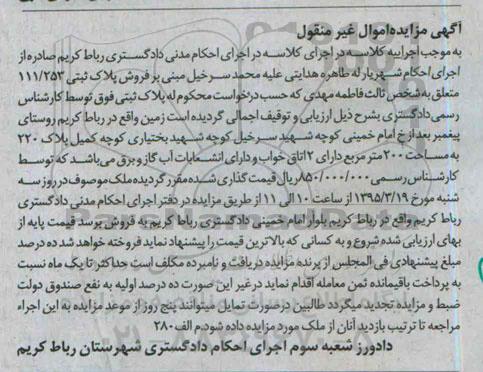 آگهی مزایده اموال غیر منقول
به موجب اجراییه کلاسه در اجرای کلاسه در اجرای احکام مدنی دادگستری رباط کریم صادره از
اجرای احکام شهریار له طاهره هدایتی علیه محمد سرخیل مبنی بر فروش پلاک ثبتی ۱۱۱/۲۵۳
متعلق به شخص ثالث فاطمه مهدی که حسب درخواست محکوم له پلاک ثبتی فوق توسط کارشناس
رسمی دادگستری بشرح ذیل ارزیابی و توقیف اجمالی گردیده است زمین واقع در رباط کریم روستای
پیغمبر بعد از خ امام خمینی کوچه شهید سرخیل کوچه شهید بختیاری کوچه کمیل پلاک ۲۲۰
به مساحت ۲۰۰ متر مربع دارای ۲ اتاق خواب و دارای انشعابات آب گاز و برق می باشد که توسط
کارشناس رسمی ۸۵۰/۰۰۰/۰۰۰ ریال قیمت گذاری شده مقرر گردیده ملک موصوف در روز سه
شنبه مورخ ۱۳۹۵/۳/۱۹ از ساعت ۱۰ الی ۱۱ از طریق مزایده در دفتر اجرای احکام مدنی دادگستری
رباط کریم واقع در رباط کریم بلوار امام خمینی دادگستری رباط کریم به فروش برسد قیمت پایه از
بهای ارزیابی شده شروع و به کسانی که بالاترین قیمت را پیشنهاد نماید فروخته خواهد شد ده درصد
مبلغ پیشنهادی فی المجلس از برنده مزایده دریافت و نامبرده مکلف است حداکثر تا یک ماه نسبت
به پرداخت باقیمانده ثمن معامله اقدام نماید در غیر این صورت ده درصد اولیه به نفع صندوق دولت
ضبط و مزایده تجدید میگردد طالبین درصورت تمایل میتوانند پنج روز از موعد مزایده به این اجراء
مراجعه تا ترتیب بازدید آنان از ملک مورد مزایده داده شود. م الف ۲۸۰
دادورز شعبه سوم اجرای احکام دادگستری شهرستان رباط کریم